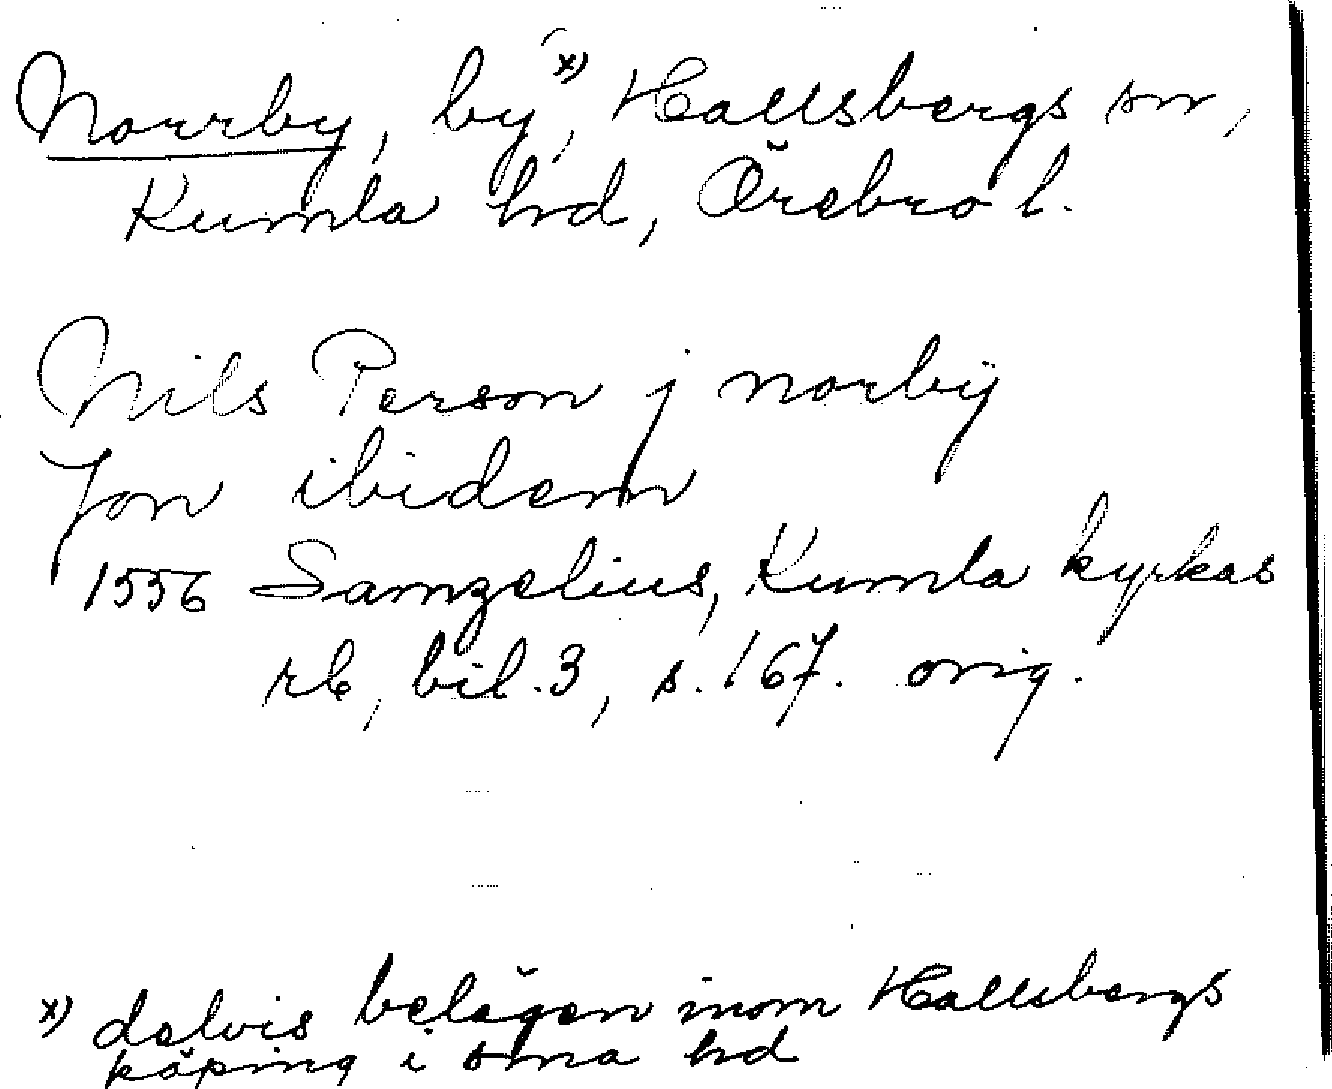 Norrby, by x), Hallsbergs sn,
Kumla hd, Örebro l.
Nils Person j norbÿ
Jon ibidem
1556 Samzelius, Kumla kyrkas
rb, bil. 3, s. 167. orig.
x) delvis belägen inom Hallsbergs
köping i sma hd